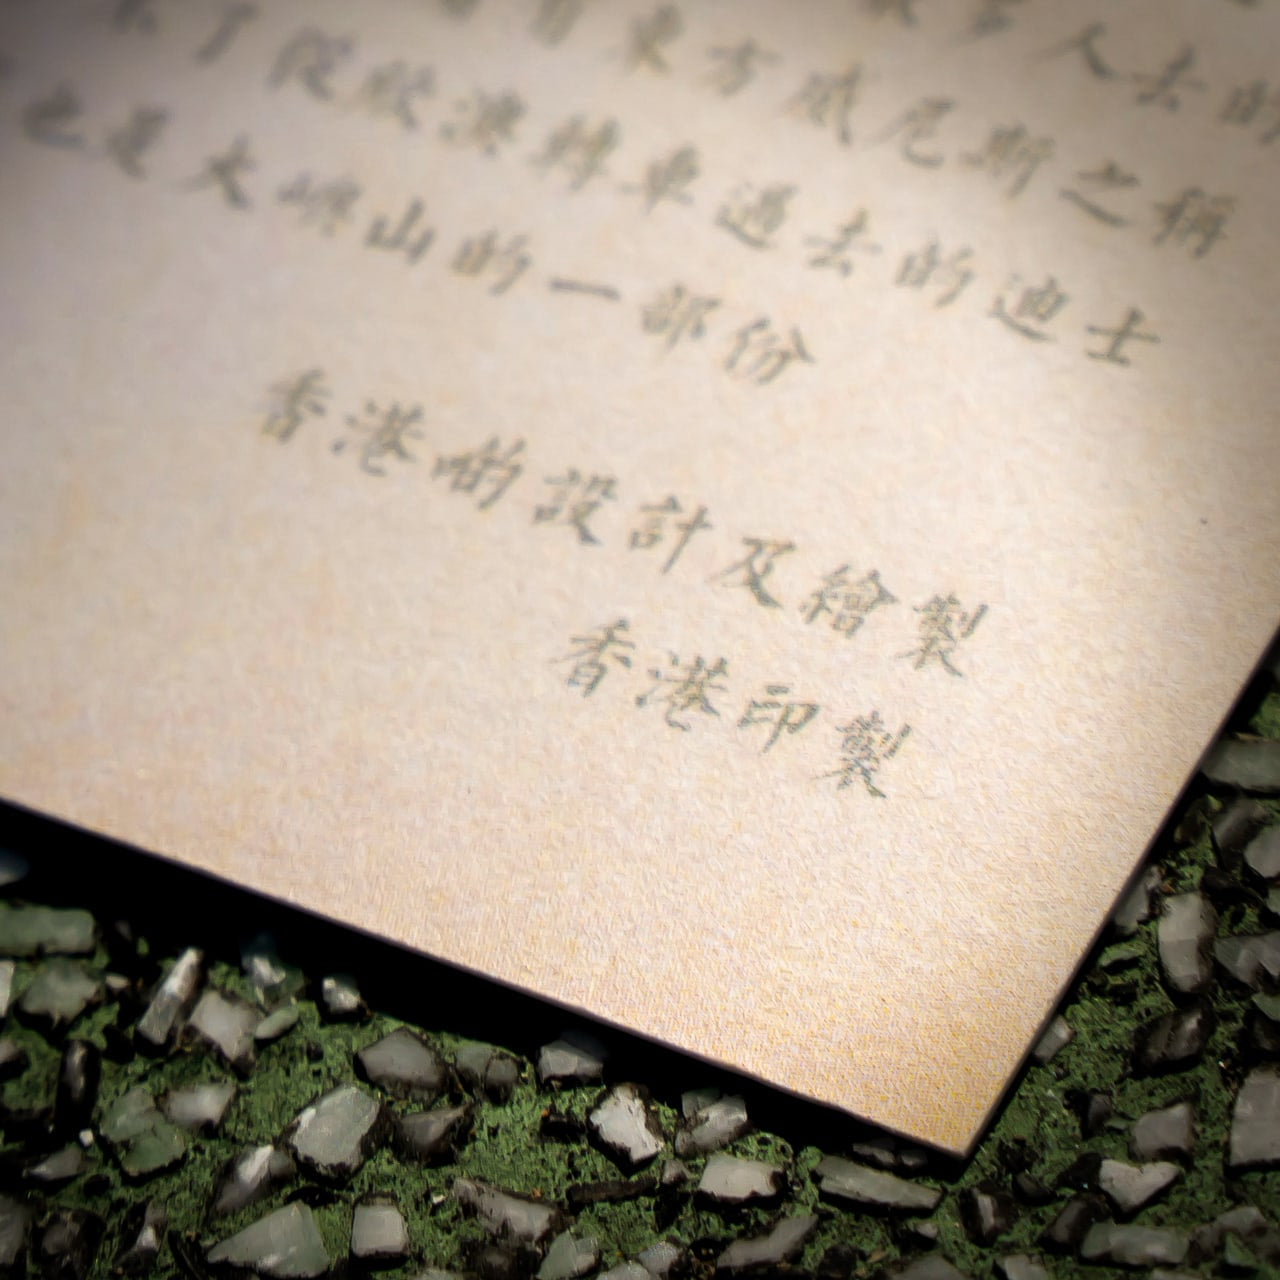 人去的
東方威尼斯之稱
了從欣澳轉車過去的迪士
也是大嶼山的一部份
香港啲設計及繪製
香港印製